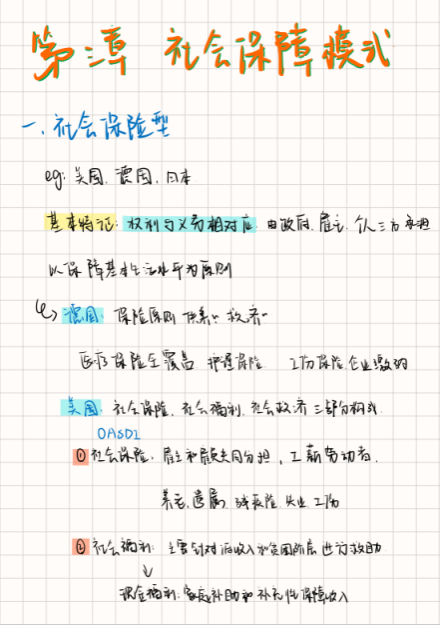 第三章 社会保障模式
一、社会保险型
eg: 美国、德国、日本
基本特征: 权利与义务相对应 由政府、雇主、个人三方承担
以保障基本生活水平为原则
德国: 保险原则 供养 救济
医疗保险全覆盖 护理保险 工伤保险 企业缴纳
美国: 社会保险、社会福利、社会救济 三部分构成
OASDI
① 社会保险: 雇主和雇员共同分担, 工薪劳动者,
养老、遗属、残疾险、失业、工伤
② 社会福利: 主要针对低收入和贫困阶层进行救助
现金福利: 家庭补助和补充性保障收入